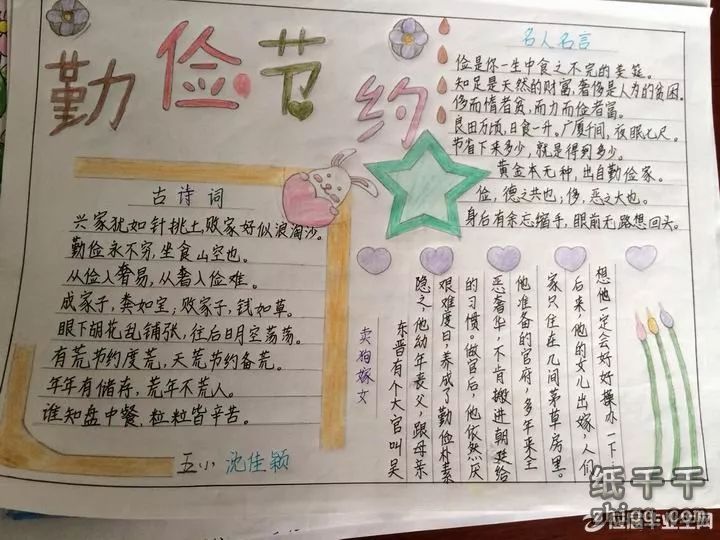 勤俭节约
名人名言
俭是你一生中食之不完的美筵。
知足是天然的财富,奢侈是人为的贫困。
侈而惰者贫,而力而俭者富。
良田万顷,日食一升。广厦千间,夜眠七尺。
节省下来多少,就是得到多少。
黄金本无种,出自勤俭家。
俭,德之共也,侈,恶之大也。
身后有余忘缩手,眼前无路想回头。
古诗词
兴家犹如针挑土,败家好似浪淘沙。
勤俭永不穷,坐食山空也。
从俭入奢易,从奢入俭难。
成家子,粪如宝;败家子,钱如草。
眼下胡花乱铺张,往后日月空荡荡。
有荒节约度荒,天荒节约备荒。
年年有储存,荒年不荒人。
谁知盘中餐,粒粒皆辛苦。
五小 沈佳颖
卖狗嫁女
东晋有个大官叫吴
隐之,他幼年丧父,跟母亲
艰难度日,养成了勤俭朴素
的习惯。做官后,他依然厌
恶奢华,不肯搬进朝廷给
他准备的官府,多年来全
家只住在几间茅草房里。
后来,他的女儿出嫁,人们
想他一定会好好操办一下
纸干干
应届毕业生网